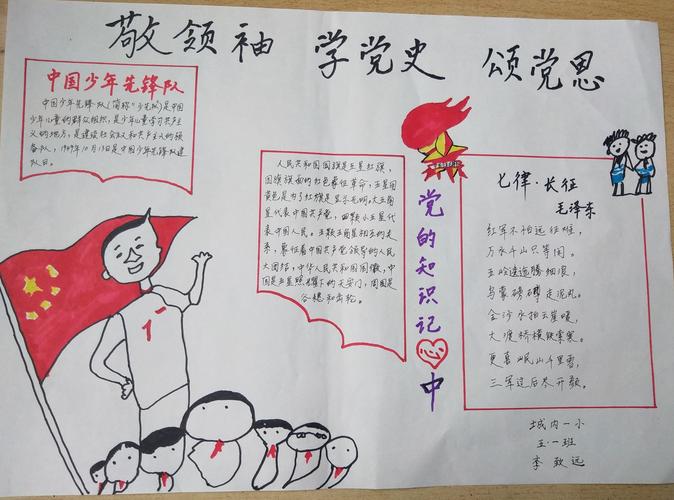 敬领袖 学党史 颂党恩
中国少年先锋队
中国少年先锋队(简称"少先队)是中国
少年儿童的群众组织,是少年儿童学习共产主
义的地方,是建设社会主义和共产主义的预
备队,1949年10月13日是中国少年先锋队建
队日。
人民共和国国旗是五星红旗,
国旗旗面的红色象征革命,五星用
黄色是为了红旗显示光明,大五角星
星代表中国共产党,四颗小五星代
表中国人民。五颗五角星相互的关
系,象征着中国共产党领导的人民
大团结,中华人民共和国国徽,中
间是五星照耀下的天安门,周围是
谷穗和齿轮。
党的知识记心中
七律·长征
毛泽东
红军不怕远征难,
万水千山只等闲。
五岭逶迤腾细浪,
乌蒙磅礴走泥丸。
金沙水拍云崖暖,
大渡桥横铁索寒。
更喜岷山千里雪,
三军过后尽开颜。
城内一小
五·一班
李致远